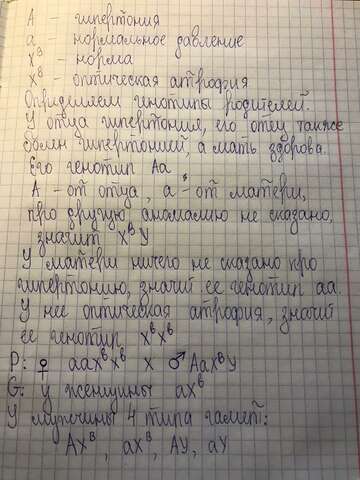 А – гипертония
а – нормальное давление
Xᴮ – норма
Xᵇ – оптическая атрофия
Определяем генотипы родителей.
У отца гипертония, его отец также
болен гипертонией, а мать здорова.
Его генотип Аа
А – от отца, а – от матери,
про другую аномалию не сказано,
значит XᴮY
У матери ничего не сказано про
гипертонию, значит ее генотип аа.
У нее оптическая атрофия, значит
ее генотип XᵇXᵇ
P: ♀ ааXᵇXᵇ x ♂АаXᴮY
G: у женщины аXᵇ
У мужчины 4 типа гамет:
АXᴮ, аXᴮ, АY, аY